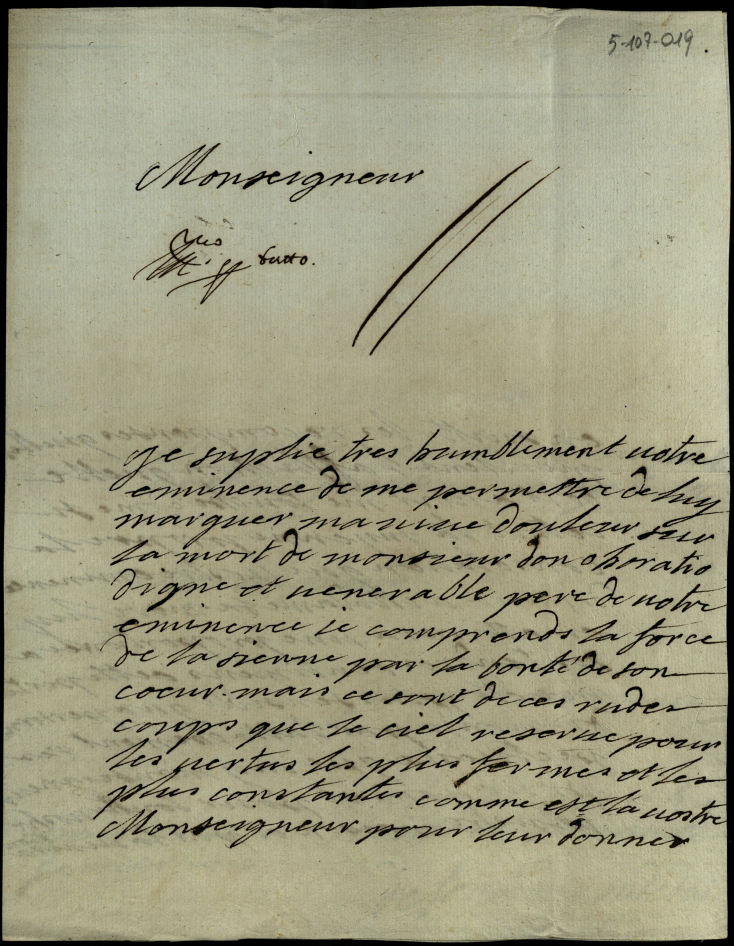 5-107-019
Monseigneur
fatto.
je suplie tres humblement votre
eminence de me permettre de luy
marquer ma vive douleur sur
la mort de monsieur don ohoratio
digne et venerable pere de votre
eminence ie comprends la force
de la sienne par la bonté de son
coeur mais ce sont de ces rudes
coups que le ciel reserve pour
les vertus les plus fermes et les
plus constantes comme est la vostre
Monseigneur pour leur donner